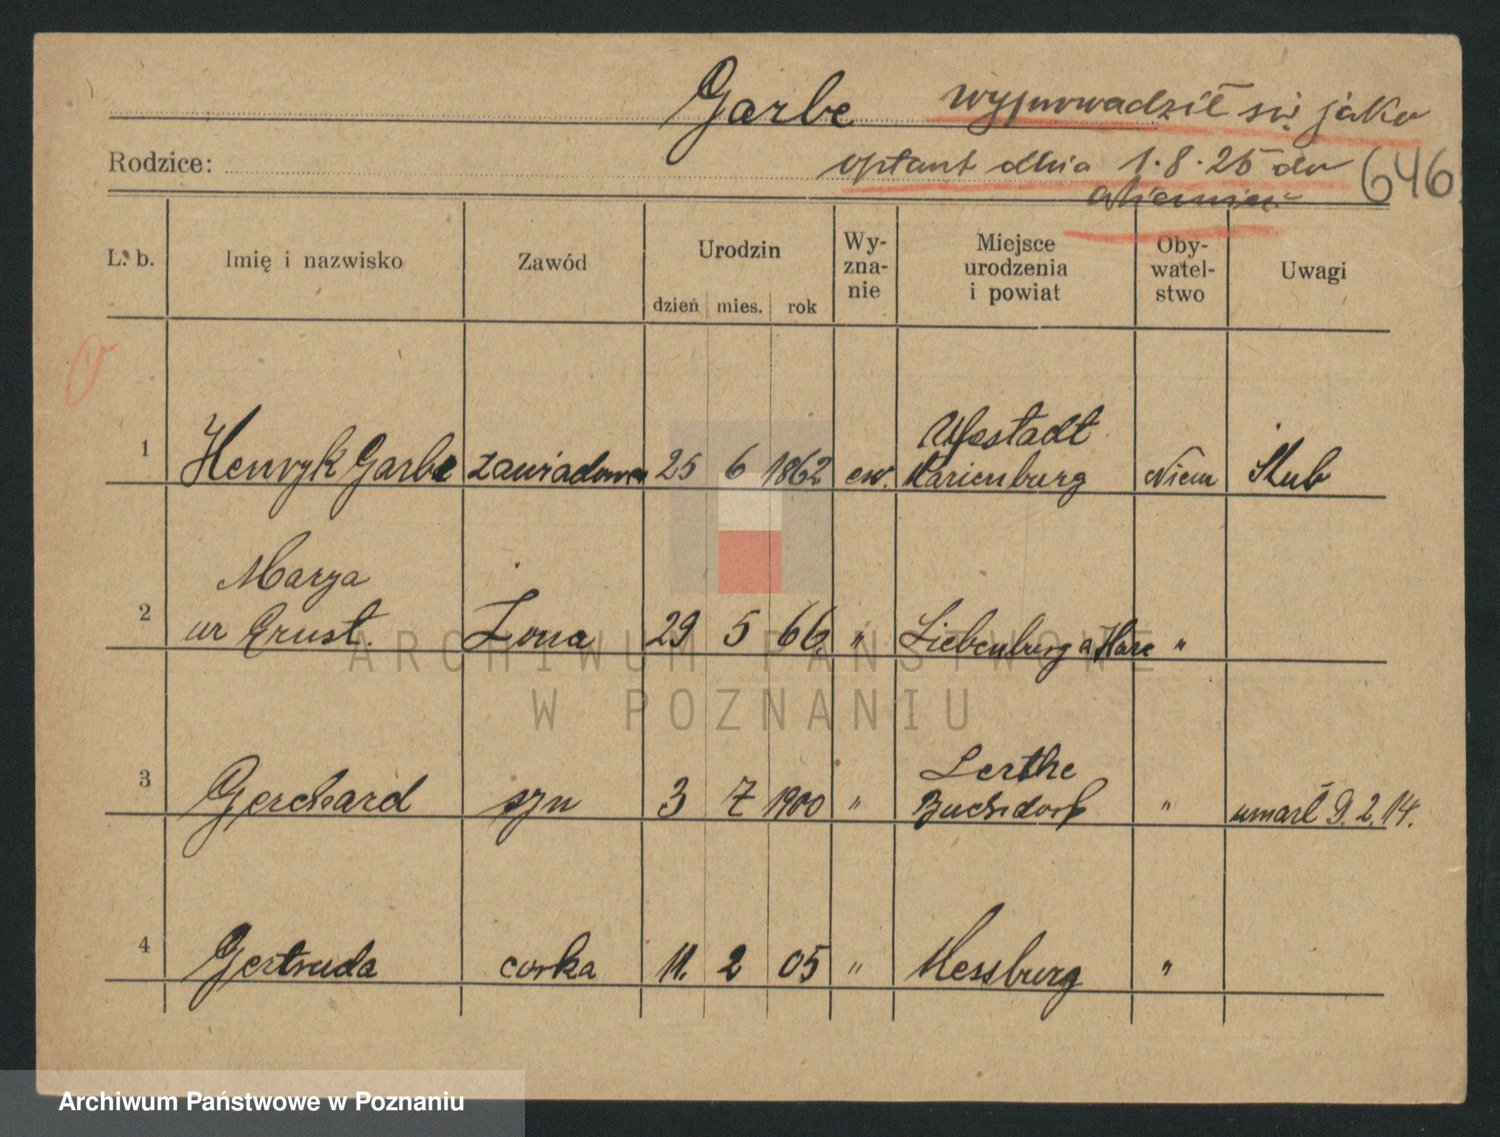 Garbe wyprowadził się jako
Rodzice: optant dnia 1.8.25 do 646
Niemiec
L. b. Imię i nazwisko Zawód Urodzin Wy-zna-nie Miejsce urodzenia i powiat Oby-watel-stwo Uwagi
dzień mies. rok
Altstadt
1 Henryk Garbe zawiadowca 25 6 1862 ew. Marienburg Niem Ślub
Marya
2 ur Ernst. Żona 29 5 66 " Liebenburg a Harz "
Lerthe
3 Gerchard syn 3 7 1900 " Buchsdorf " umarł 9.2.14.
4 Gertruda corka 11. 2 05 " Messburg "
ARCHIWUM PAŃSTWOWE
W POZNANIU
Archiwum Państwowe w Poznaniu